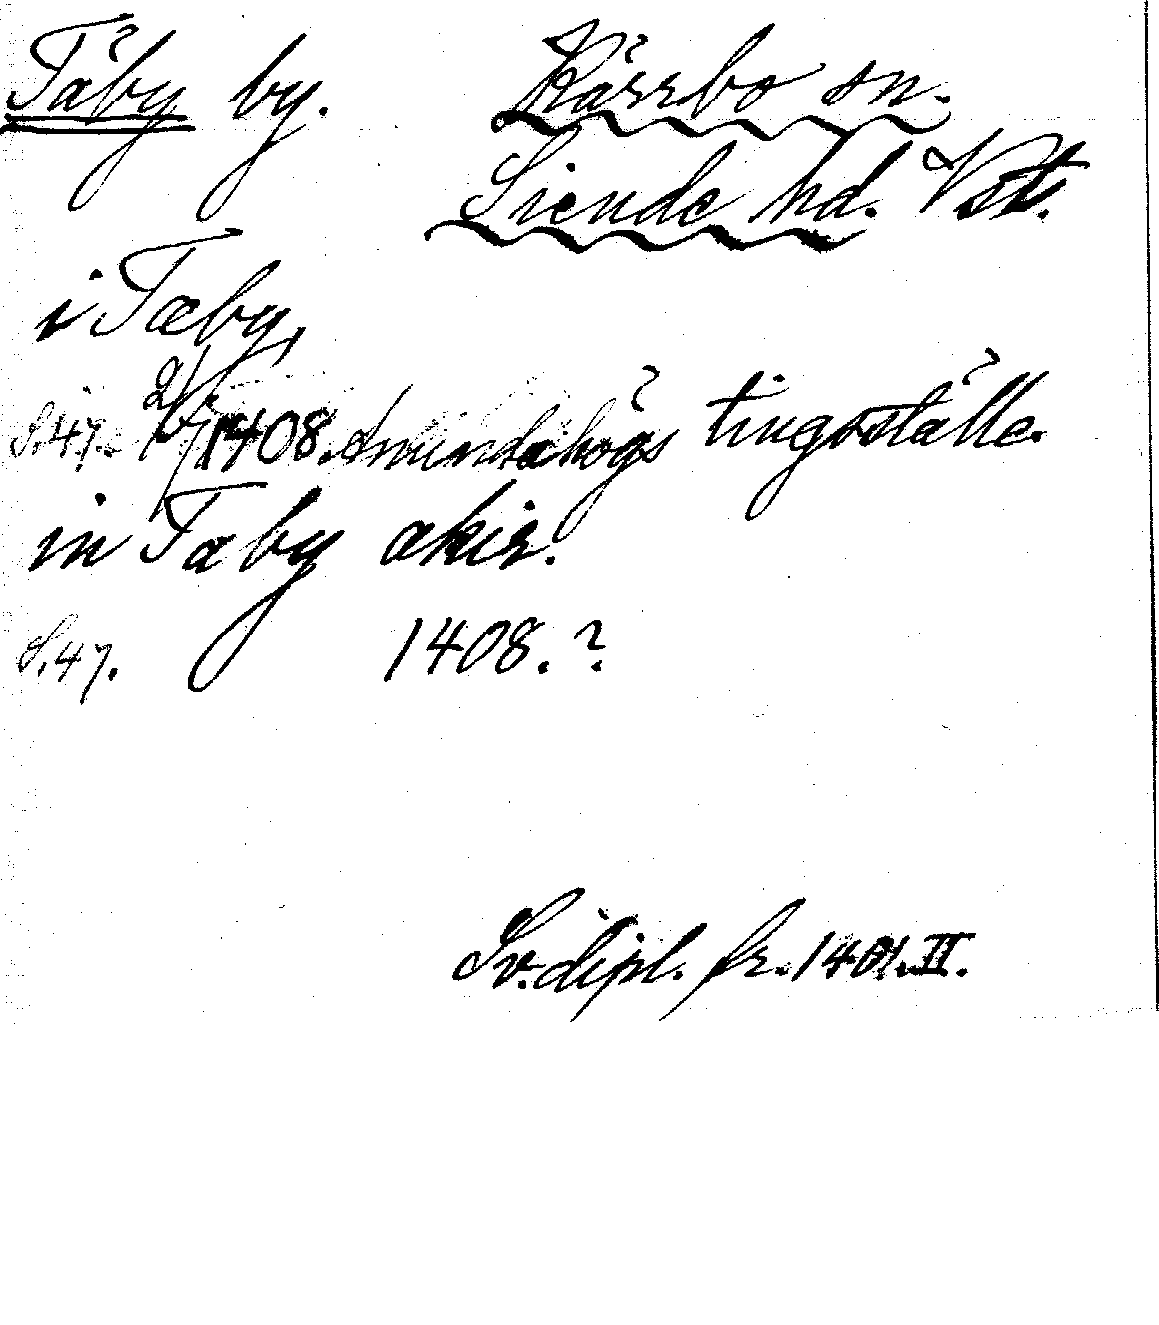 Täby by. Kärrbo sn.
Siende hd. Vstm.
i Tæby,
S.47. 2/5 1408. Amundahögs tingsställe.
in Tæby akir.
S.47. 1408.?
Sv. dipl. fr. 1401. II.